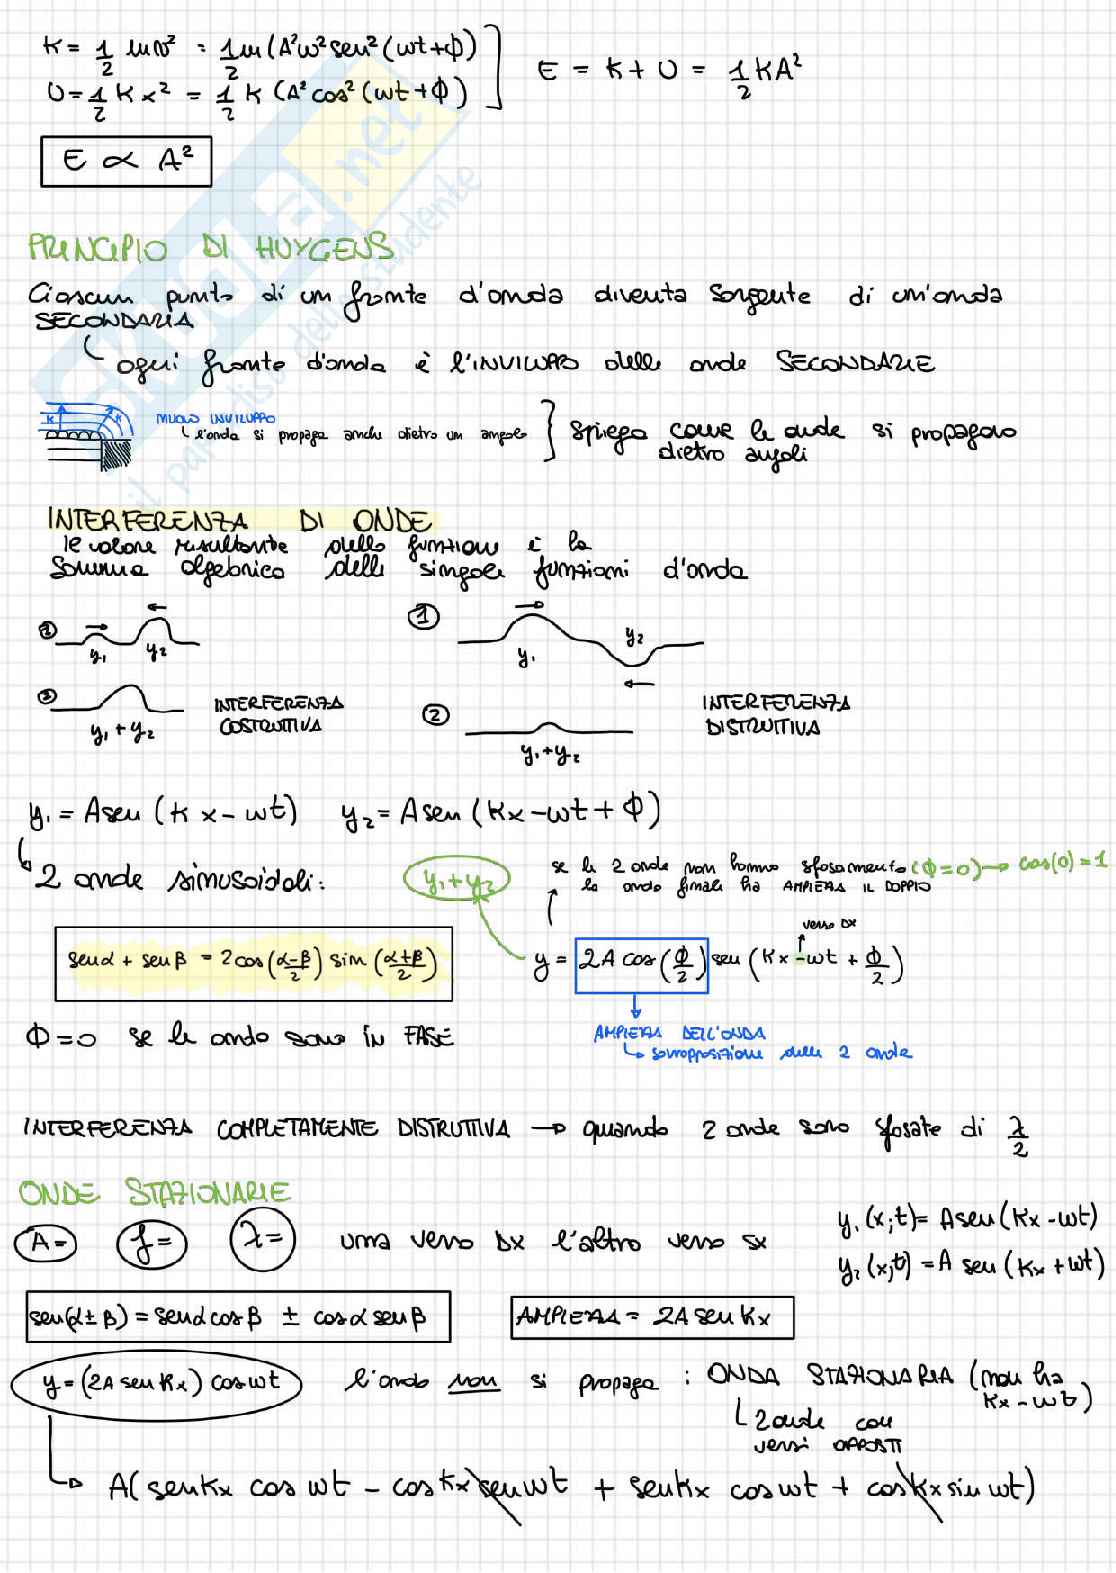 K = 1/2 mv² = 1/2 m(A²ω²sen²(ωt+ϕ)
U = 1/2 K x² = 1/2 K (A²cos²(ωt+ϕ)
E = K + U = 1/2 KA²
E ∝ A²
PRINCIPIO DI HUYGENS
Ciascun punto di un fronte d'onda diventa sorgente di un'onda
SECONDARIA
ogni fronte d'onda è l'INVILUPPO delle onde SECONDARIE
NUOVO INVILUPPO
l'onda si propaga anche dietro un angolo
spiega come le onde si propagano
dietro angoli
INTERFERENZA DI ONDE
le valore risultante della funzione è la
somma algebrica delle singole funzioni d'onda
① y₁ y₂
① y₁ y₂
② y₁ + y₂
INTERFERENZA
COSTRUTTIVA
② y₁+y₂
INTERFERENZA
DISTRUTTIVA
y₁ = A sen (K x - ωt) y₂ = A sen (Kx - ωt + ϕ)
2 onde sinusoidali:
y₁+y₂
se le 2 onde non hanno sfasamento (ϕ=0) → cos(0)=1
la onda finale ha AMPIEZZA IL DOPPIO
verso DX
senα + senβ = 2cos(α-β/2) sin(α+β/2)
y = 2A cos(ϕ/2) sen (Kx - ωt + ϕ/2)
AMPIEZZA DELL'ONDA
sovrapposizione delle 2 onde
ϕ=0 se le onde sono in FASE
INTERFERENZA COMPLETAMENTE DISTRUTTIVA → quando 2 onde sono sfasate di λ/2
ONDE STAZIONARIE
A= f= λ= una verso DX l'altro verso SX
y₁(x;t) = A sen(Kx - ωt)
y₂(x;t) = A sen(Kx + ωt)
sen(α±β) = senα cosβ ± cosα senβ
AMPIEZZA = 2A sen Kx
y = (2A sen Kx) cosωt l'onda non si propaga : ONDA STAZIONARIA (non ha
Kx - ωt)
2 onde con
versi OPPOSTI
A(senKx cosωt - cosKx senωt + senKx cosωt + cosKx sinωt)
skuola.net
il paradiso dello studente